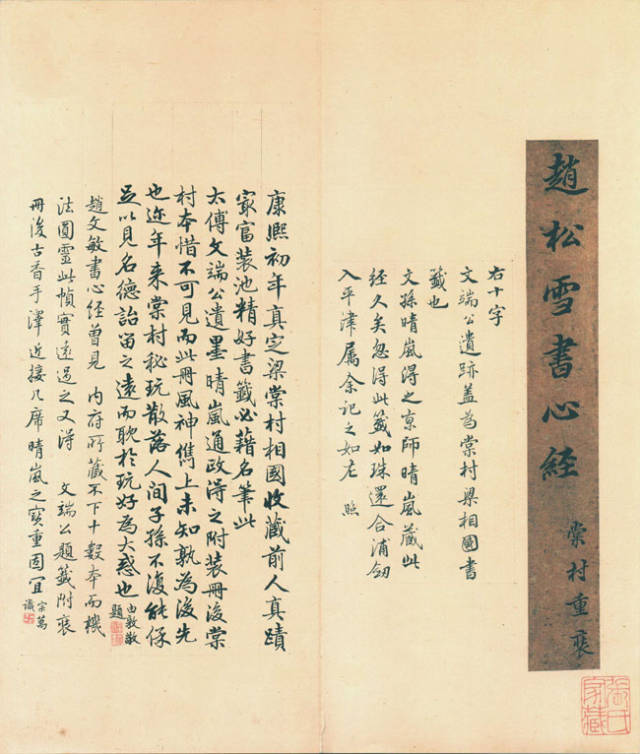 趙松雪書心經
棠村重裝
右十字
文端公遺跡蓋為棠村梁相國書
籤也
文孫晴嵐得之京師晴嵐藏此
經久矣忽得此籤如珠還合浦劒
入平津屬余記之如左 照
康熙初年真定梁棠村相國收藏前人真蹟
宬富裝池精好書籤必藉名筆此
太傅文端公遺墨晴嵐通政得之附裝冊後棠
村本惜不可見而此冊風神雋上未知孰為後先
也近年来棠村秘玩散落人間子孫不復能保
足以見名德詒留之遠而耽於玩好為大惑也
由敦敬
題
趙文敏書心經曾見 内府所藏不下十數本而機
法圓靈此幀實遠過之又得 文端公題籤附裝
冊後古香手澤近接几席晴嵐之寶重固宜
宗萬
識
張氏
家藏